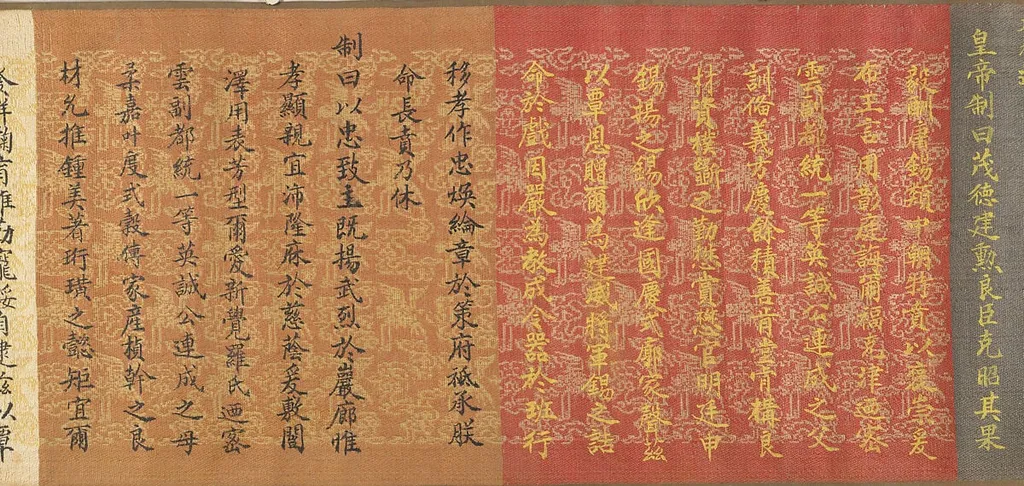 皇帝制曰茂德建勲良臣克昭其果
毅酬庸錫類中朝特賁以褒嘉爰
布王言用彰庭誨爾福克津迺密
雲副都統一等英誠公連成之父
訓備義方慶餘積善肯堂肯構良
材資樸斵之勤懋賞懋官明廷申
錫揚之錫欣逢國慶式廓家聲茲
以覃恩贈爾為建威將軍錫之誥
命於戲因嚴為教成令器於班行
移孝作忠煥綸章於策府祗承朕
命長賁乃休
制曰以忠致主既揚武烈於巖廊惟
孝顯親宜沛隆庥於慈蔭爰敷閫
澤用表芳型爾愛新覺羅氏迺密
雲副都統一等英誠公連成之母
柔嘉叶度式穀傳家產楨幹之良
材允推鍾美著珩璜之懿矩宜爾